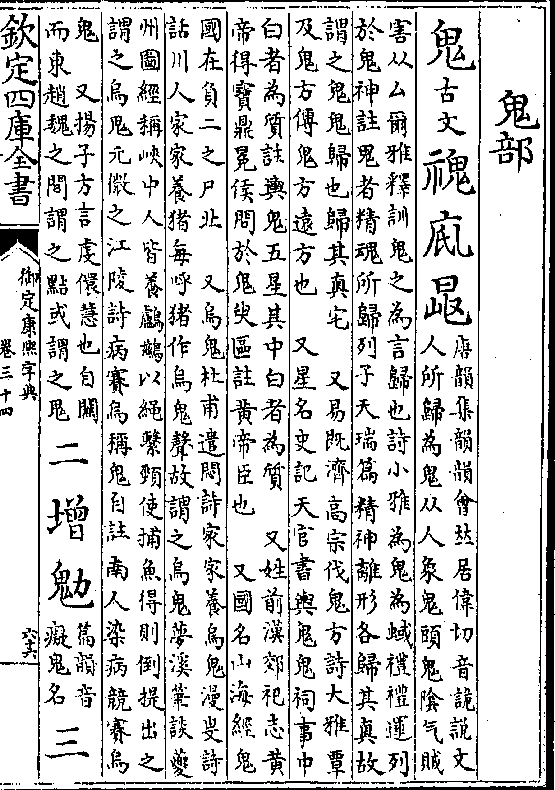 鬼部
鬼古文䰟㞑𩲡唐韻集韻韻會𠀤居偉切音詭說文
人所歸為鬼从人象鬼頭鬼陰气賊
害从厶爾雅釋訓鬼之為言歸也詩小雅為鬼為蜮禮禮運列
於鬼神註鬼者精魂所歸列子天瑞篇精神離形各歸其真故
謂之鬼鬼歸也歸其真宅 又易既濟高宗伐鬼方詩大雅覃
及鬼方傳鬼方遠方也 又星名史記天官書輿鬼鬼祠事中
白者為質註輿鬼五星其中白者為質 又姓前漢郊祀志黄
帝得寶鼎冕侯問於鬼臾區註黄帝臣也 又國名山海經鬼
國在負二之尸北 又烏鬼杜甫遣悶詩家家養烏鬼漫叟詩
話川人家家養猪每呼猪作烏鬼聲故謂之烏鬼夢溪筆談夔
州圖經稱峽中人皆養鸕鷀以繩繫頸使捕魚得則倒提出之
謂之烏鬼元微之江陵詩病賽烏稱鬼自註南人染病競賽烏
鬼 又揚子方言虔儇慧也自關
而東趙魏之間謂之黠或謂之鬼
二
增
勉篇韻音
癡鬼名
三
欽定四庫全書
御定康熙字典
卷三十四
六六